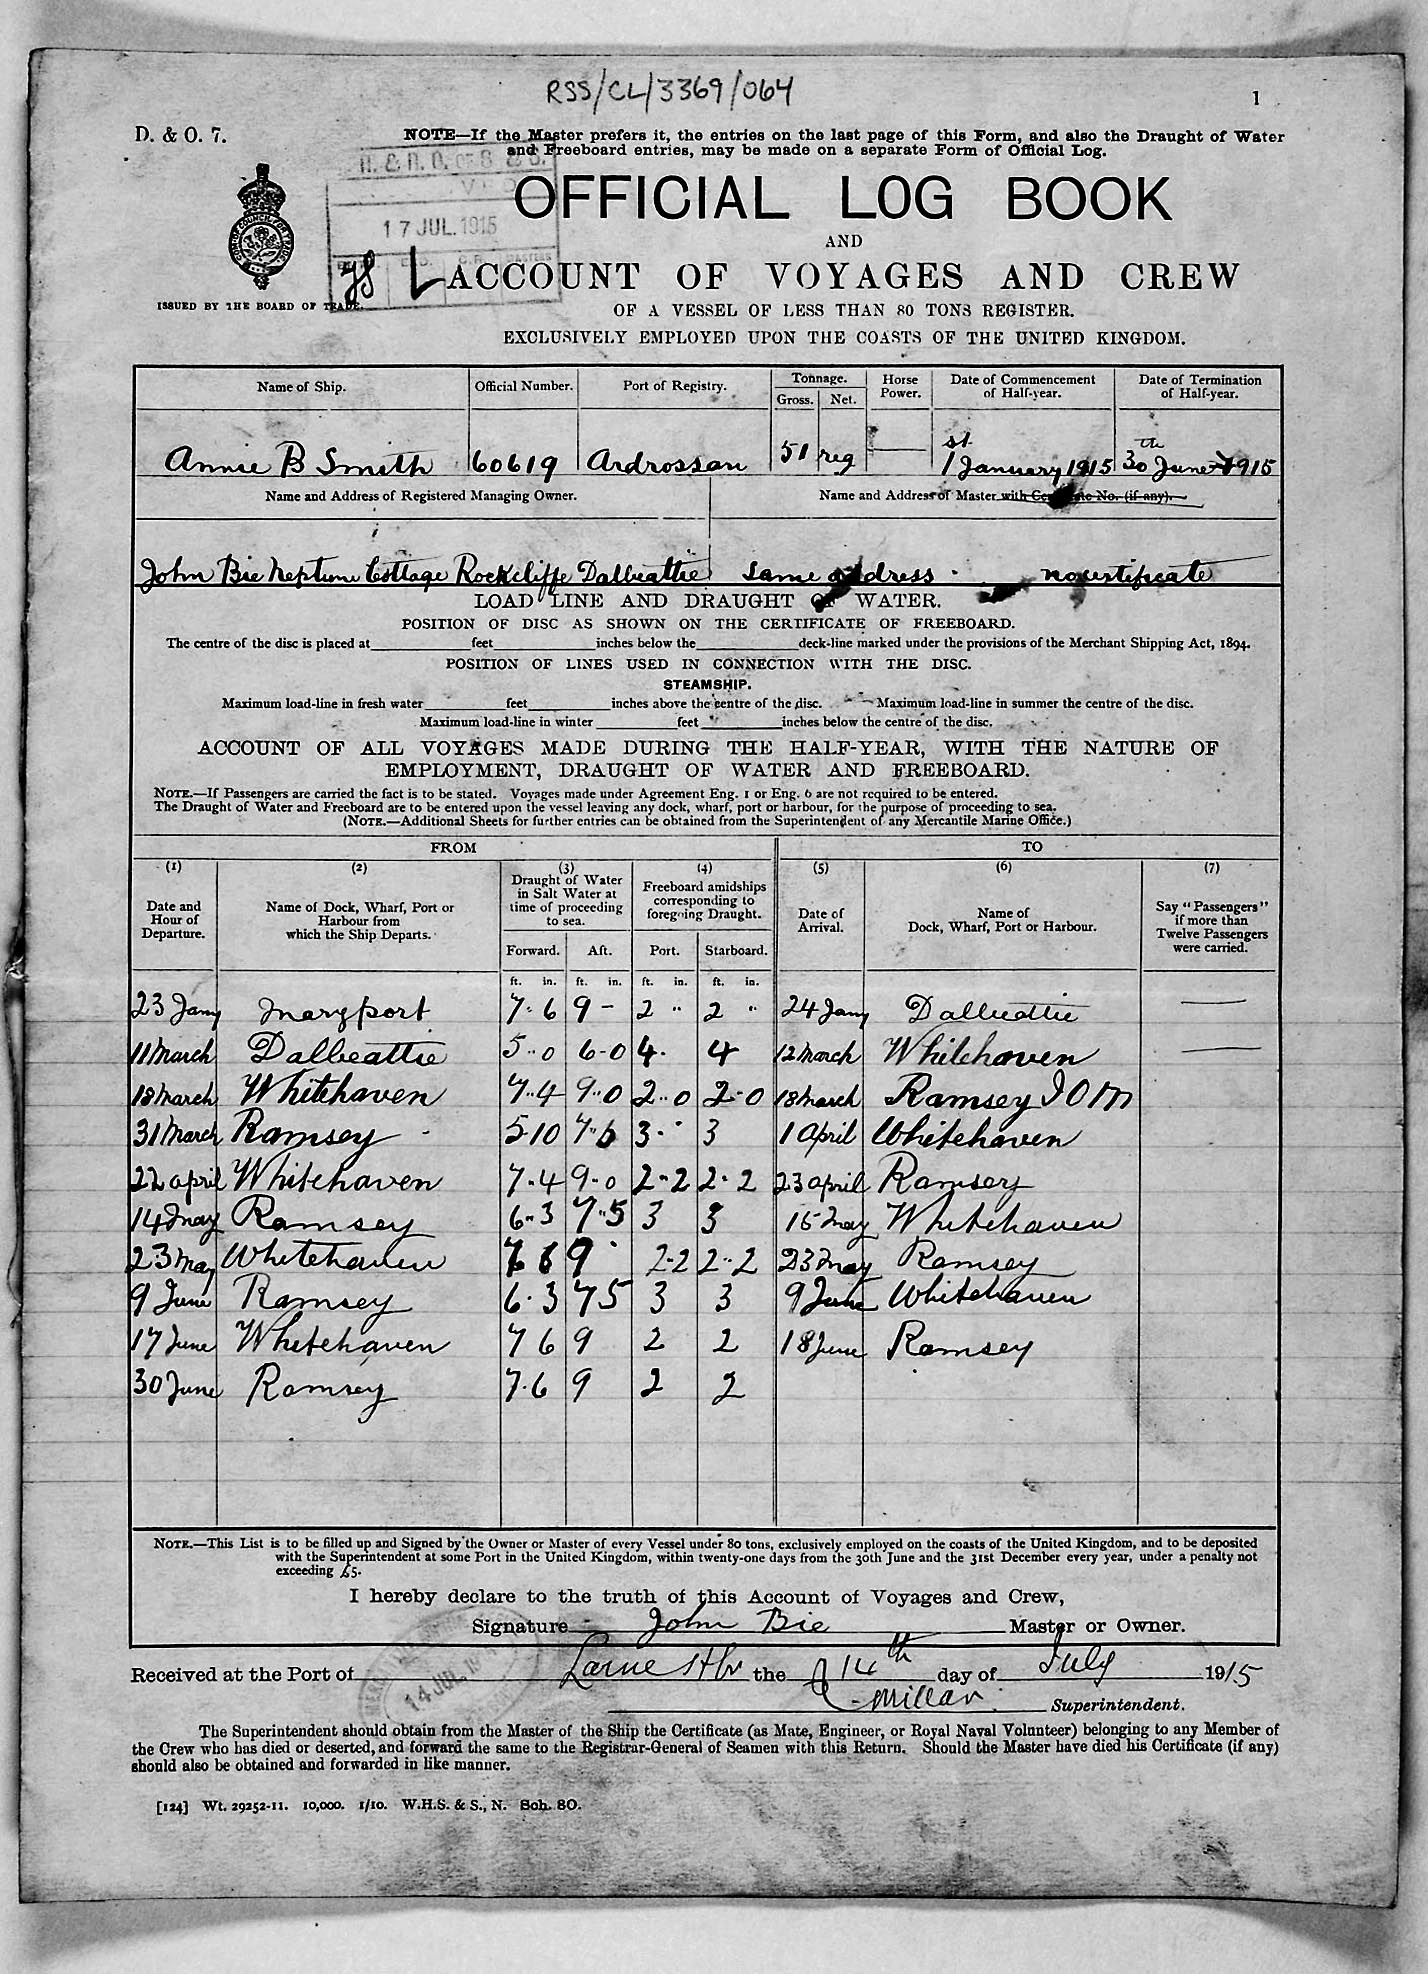 RSS/CL/3369/064
1
D. & O. 7.
NOTE—If the Master prefers it, the entries on the last page of this Form, and also the Draught of Water
and Freeboard entries, may be made on a separate Form of Official Log.
17 JUL. 1915
OFFICIAL LOG BOOK
AND
ACCOUNT OF VOYAGES AND CREW
ISSUED BY THE BOARD OF TRADE.
OF A VESSEL OF LESS THAN 80 TONS REGISTER.
EXCLUSIVELY EMPLOYED UPON THE COASTS OF THE UNITED KINGDOM.
Name of Ship. Official Number. Port of Registry. Tonnage. Gross. Net. Horse Power. Date of Commencement of Half-year. Date of Termination of Half-year.
Annie B Smith 60619 Ardrossan 51 reg 1st January 1915 30th June 1915
Name and Address of Registered Managing Owner. Name and Address of Master with Certificate No. (if any).
John Bie Neptune Cottage Rockcliffe Dalbeattie same address no certificate
LOAD LINE AND DRAUGHT OF WATER.
POSITION OF DISC AS SHOWN ON THE CERTIFICATE OF FREEBOARD.
The centre of the disc is placed at feet inches below the deck-line marked under the provisions of the Merchant Shipping Act, 1894.
POSITION OF LINES USED IN CONNECTION WITH THE DISC.
STEAMSHIP.
Maximum load-line in fresh water feet inches above the centre of the disc. Maximum load-line in summer the centre of the disc.
Maximum load-line in winter feet inches below the centre of the disc.
ACCOUNT OF ALL VOYAGES MADE DURING THE HALF-YEAR, WITH THE NATURE OF
EMPLOYMENT, DRAUGHT OF WATER AND FREEBOARD.
NOTE.—If Passengers are carried the fact is to be stated. Voyages made under Agreement Eng. 1 or Eng. 6 are not required to be entered.
The Draught of Water and Freeboard are to be entered upon the vessel leaving any dock, wharf, port or harbour, for the purpose of proceeding to sea.
(NOTE.—Additional Sheets for further entries can be obtained from the Superintendent of any Mercantile Marine Office.)
FROM TO
(1) (2) (3) (4) (5) (6) (7)
Date and Hour of Departure. Name of Dock, Wharf, Port or Harbour from which the Ship Departs. Draught of Water in Salt Water at time of proceeding to sea. Freeboard amidships corresponding to foregoing Draught. Date of Arrival. Name of Dock, Wharf, Port or Harbour. Say "Passengers" if more than Twelve Passengers were carried.
Forward. Aft. Port. Starboard.
ft. in. ft. in. ft. in. ft. in.
23 Jany Maryport 7·6 9 - 2 " 2 " 24 Jany Dalbeattie —
11 March Dalbeattie 5··0 6-0 4· 4 12 March Whitehaven —
18 March Whitehaven 7··4 9··0 2··0 2-0 18 March Ramsey I O M
31 March Ramsey 5-10 7··6 3·· 3 1 April Whitehaven
22 april Whitehaven 7-4 9-0 2-2 2-2 23 april Ramsey
14 May Ramsey 6··3 7··5 3 3 15 May Whitehaven
23 May Whitehaven 7 6 9 2-2 2··2 23 May Ramsey
9 June Ramsey 6·3 7 5 3 3 9 June Whitehaven
17 June Whitehaven 7 6 9 2 2 18 June Ramsey
30 June Ramsey 7·6 9 2 2
NOTE.—This List is to be filled up and Signed by the Owner or Master of every Vessel under 80 tons, exclusively employed on the coasts of the United Kingdom, and to be deposited
with the Superintendent at some Port in the United Kingdom, within twenty-one days from the 30th June and the 31st December every year, under a penalty not
exceeding £5.
I hereby declare to the truth of this Account of Voyages and Crew,
Signature John Bie Master or Owner.
Received at the Port of Larne Hbr the 14th day of July 1915
14 JUL
Millar Superintendent.
The Superintendent should obtain from the Master of the Ship the Certificate (as Mate, Engineer, or Royal Naval Volunteer) belonging to any Member of
the Crew who has died or deserted, and forward the same to the Registrar-General of Seamen with this Return. Should the Master have died his Certificate (if any)
should also be obtained and forwarded in like manner.
[124] Wt. 29252-11. 10,000. 1/10. W.H.S. & S., N. Sch. 80.